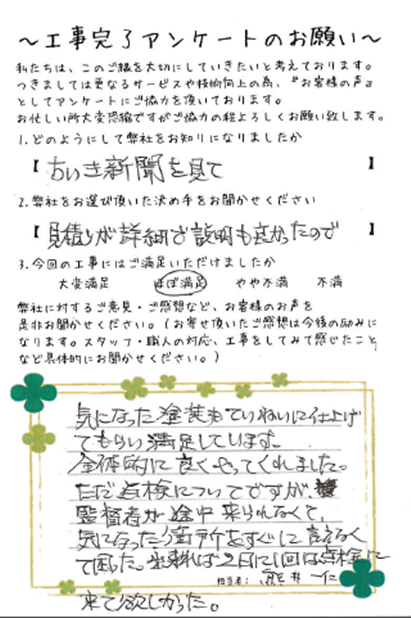 ～工事完了アンケートのお願い～
私たちは、このご縁を大切にしていきたいと考えております。
つきましては更なるサービスや技術向上の為、『お客様の声』
としてアンケートにご協力を頂いております。
お忙しい所大変恐縮ですがご協力の程よろしくお願い致します。
1.どのようにして弊社をお知りになりましたか
【ちいき新聞を見て】
2.弊社をお選び頂いた決め手をお聞かせください
【見積りが詳細で説明も良かったので】
3.今回の工事にはご満足いただけましたか
大変満足 ほぼ満足 やや不満 不満
弊社に対するご意見・ご感想など、お客様のお声を
是非お聞かせください。（お寄せ頂いたご感想は今後の励みに
なります。スタッフ・職人の対応、工事をしてみて感じたこと
など具体的にお聞かせください。）
気になった塗装もていねいに仕上げ
てもらい満足しています。
全体的に良くやってくれました。
ただ点検についてですが、
監督者が途中来られなくて、
気になった箇所をすぐに言えなく
て困った。出来れば2日に1回は点検に
担当者：
来て欲しかった。